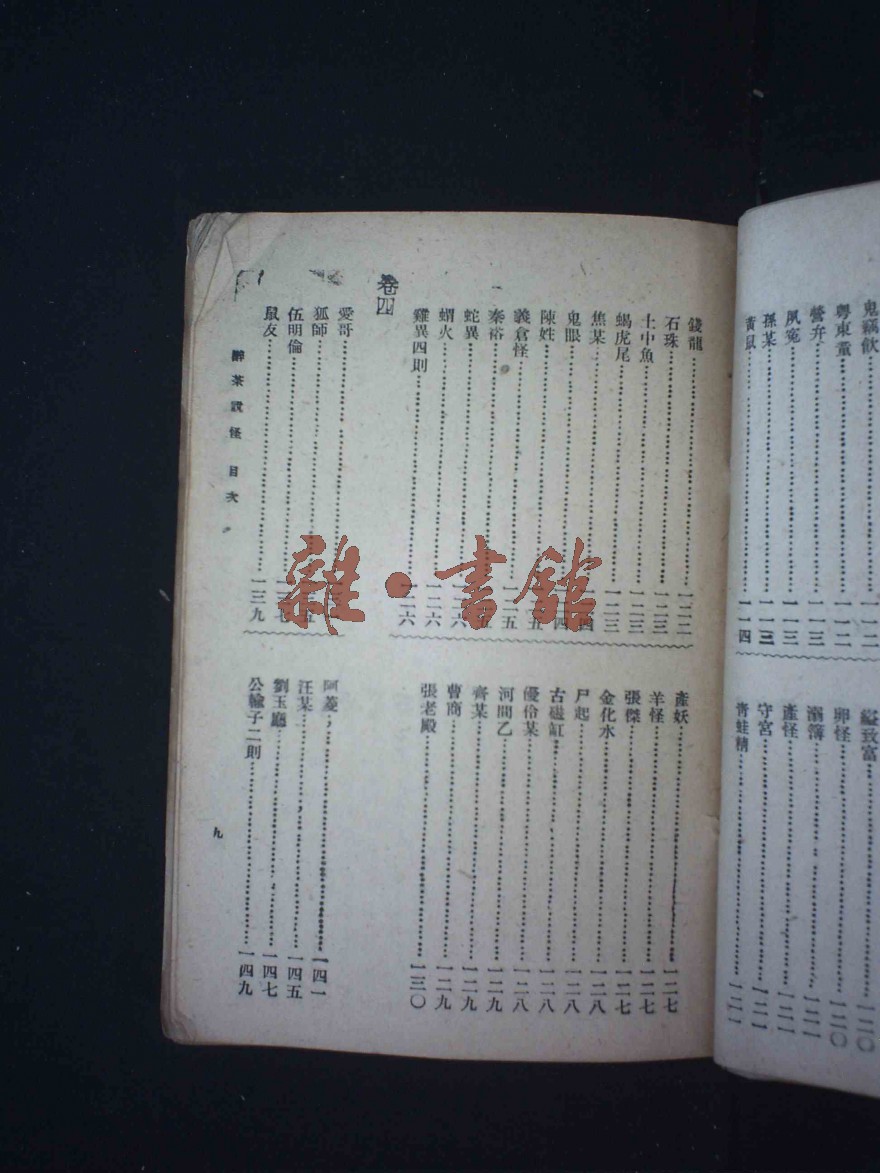 鬼竊飲……一一二
粵東童……一一二
營弁……一一三
夙冤……一一三
孫某……一一三
黃鼠……一一四
縊致富……一二〇
卵怪……一二〇
溺簿……一二一
產怪……一二一
守宮……一二一
青蛙精……一二一
錢龍……一二二
石珠……一二三
土中魚……一二三
蝎虎尾……一二三
焦某……四
鬼眼……四
陳姓……五
義倉怪……一二五
秦裕……五
蛇異……六
蝟火……一二六
雞異四則……一二六
產妖……一二七
羊怪……一二七
張傑……一二七
金化水……一二八
尸起……一二八
古磁缸……一二八
優伶某……一二八
河間乙……一二九
齊某……一二九
曹商……一二九
張老殿……一三〇
卷四
愛哥……
狐師……五
伍明倫……七
鼠友……一三九
阿菱……一四一
汪某……一四五
劉玉廳……一四七
公輸子二則……一四九
醉茶說怪 目次
九
雜·書館